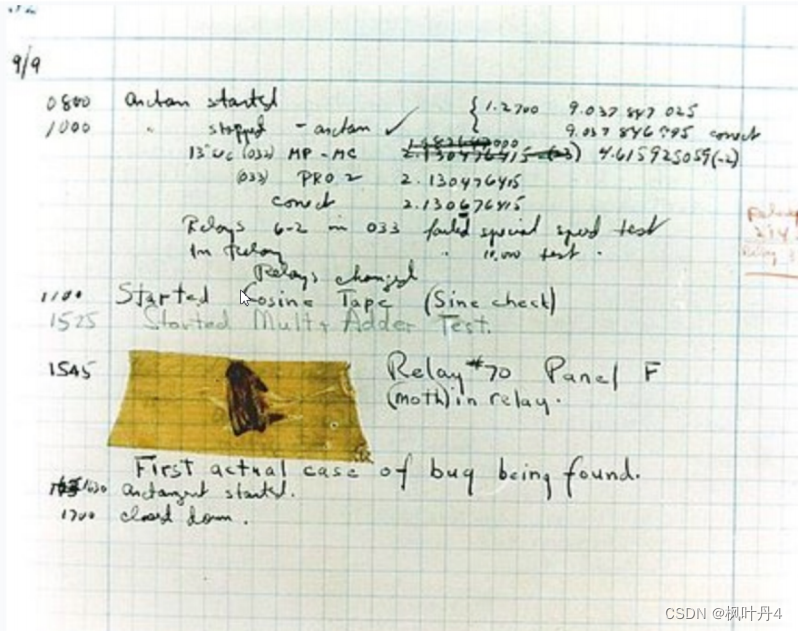 9/9
0800 arctan started { 1.2700 9.037 847 025
1000 " stopped - arctan ✓ 9.037 846 795 correct
13"UC (032) MP - MC 2.130476415 (-3) 4.615925059(-2)
(033) PRO 2 2.130476415
correct 2.130676415
Relays 6-2 in 033 failed special speed test
In Relay " 10,000 test .
Relays changed
1100 Started Cosine Tape (Sine check)
1525 Started Mult + Adder Test.
1545 Relay #70 Panel F
(moth) in relay.
First actual case of bug being found.
1630 arctangent started.
1700 closed down.
Relay
CSDN @枫叶丹4